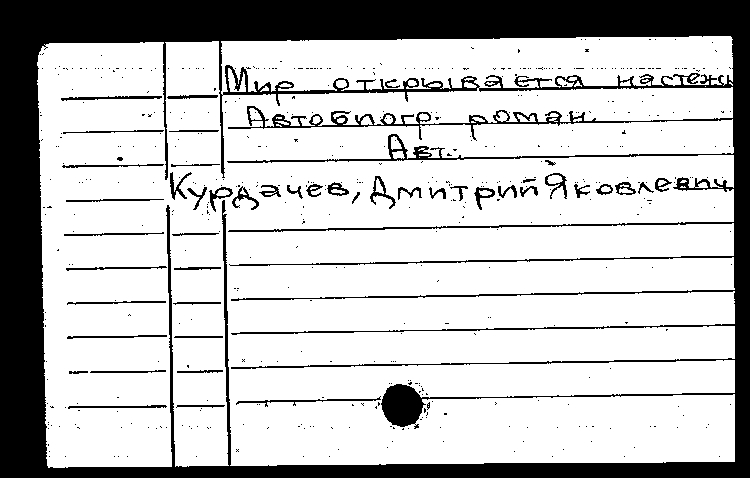 Мир открывается настежь
Автобиогр. роман.
Авт.:
Курдачев, Дмитрий Яковлевич